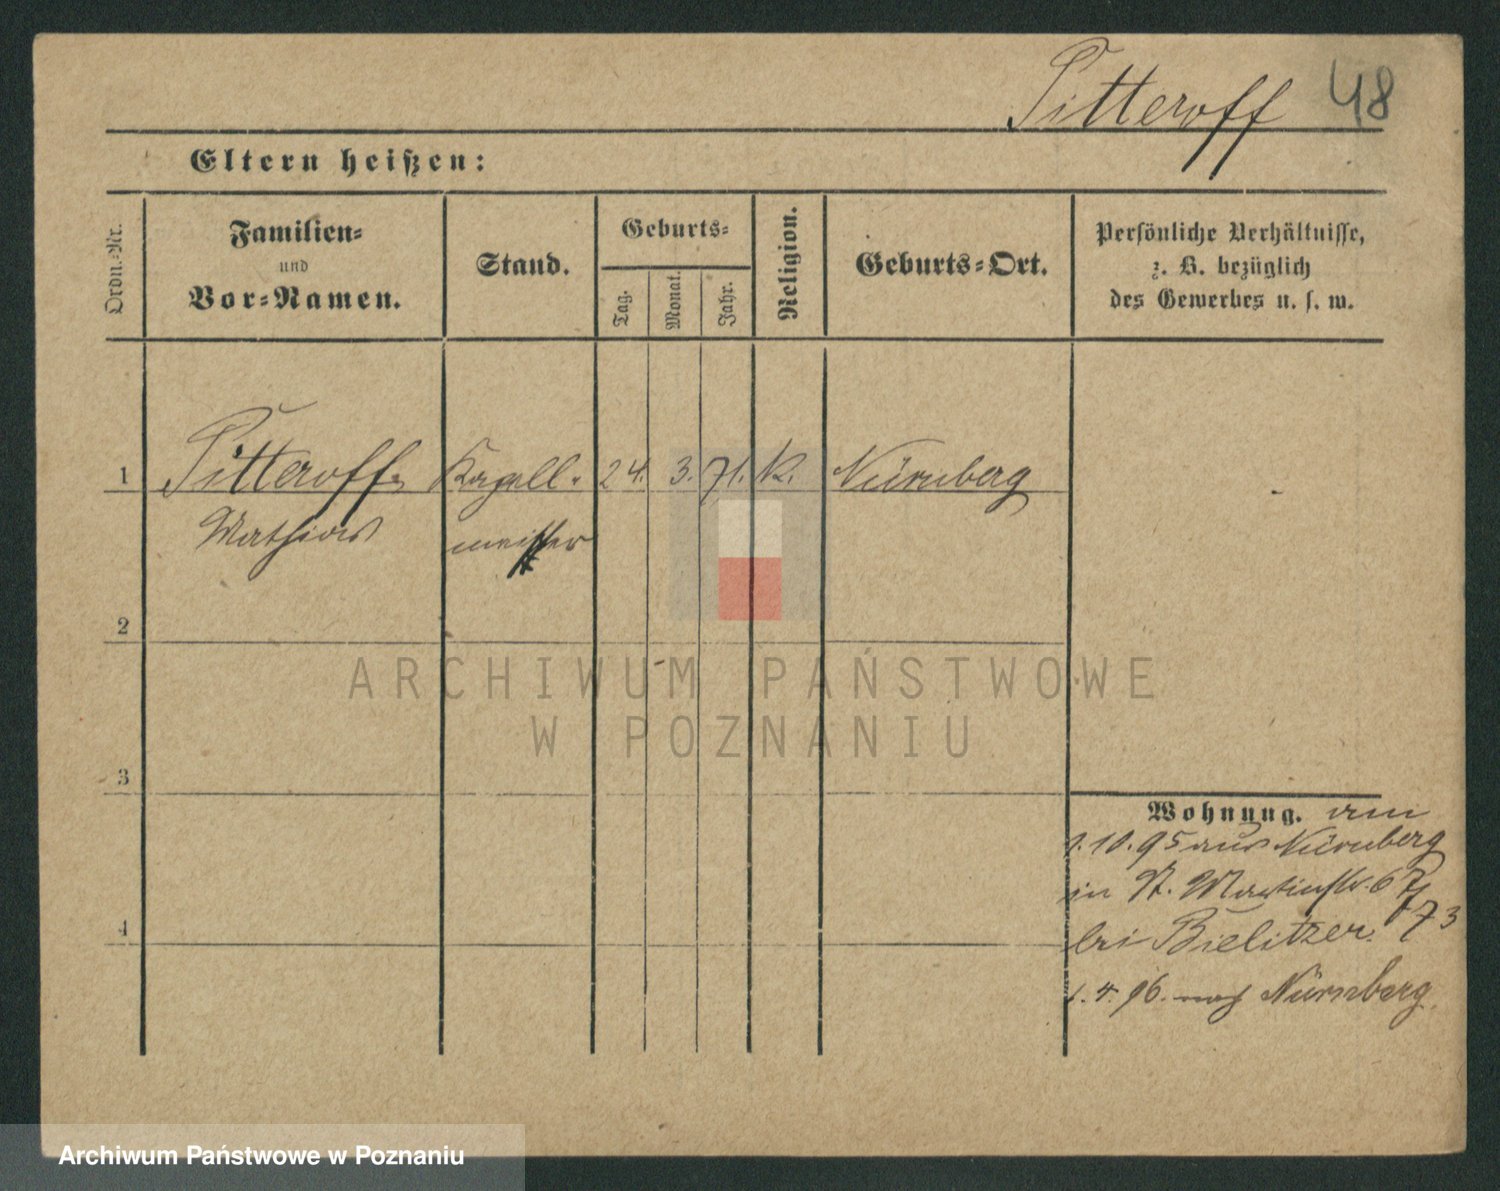 Pitteroff 48
Eltern heißen:
Ordn.-Nr.
Familien-
und
Vor-Namen.
Stand.
Geburts-
Tag.
Monat.
Jahr.
Religion.
Geburts-Ort.
Persönliche Verhältnisse,
z. B. bezüglich
des Gewerbes u. s. w.
1 Pitteroff Kapell- 24. 3. 71. k. Nürnberg
Mathias meister
2
3
4
Wohnung. am
1.10.95 aus Nürnberg
in St. Martinstr. 67
73
bei Bielitzer.
1.4.96. nach Nürnberg.
ARCHIWUM PAŃSTWOWE
W POZNANIU
Archiwum Państwowe w Poznaniu